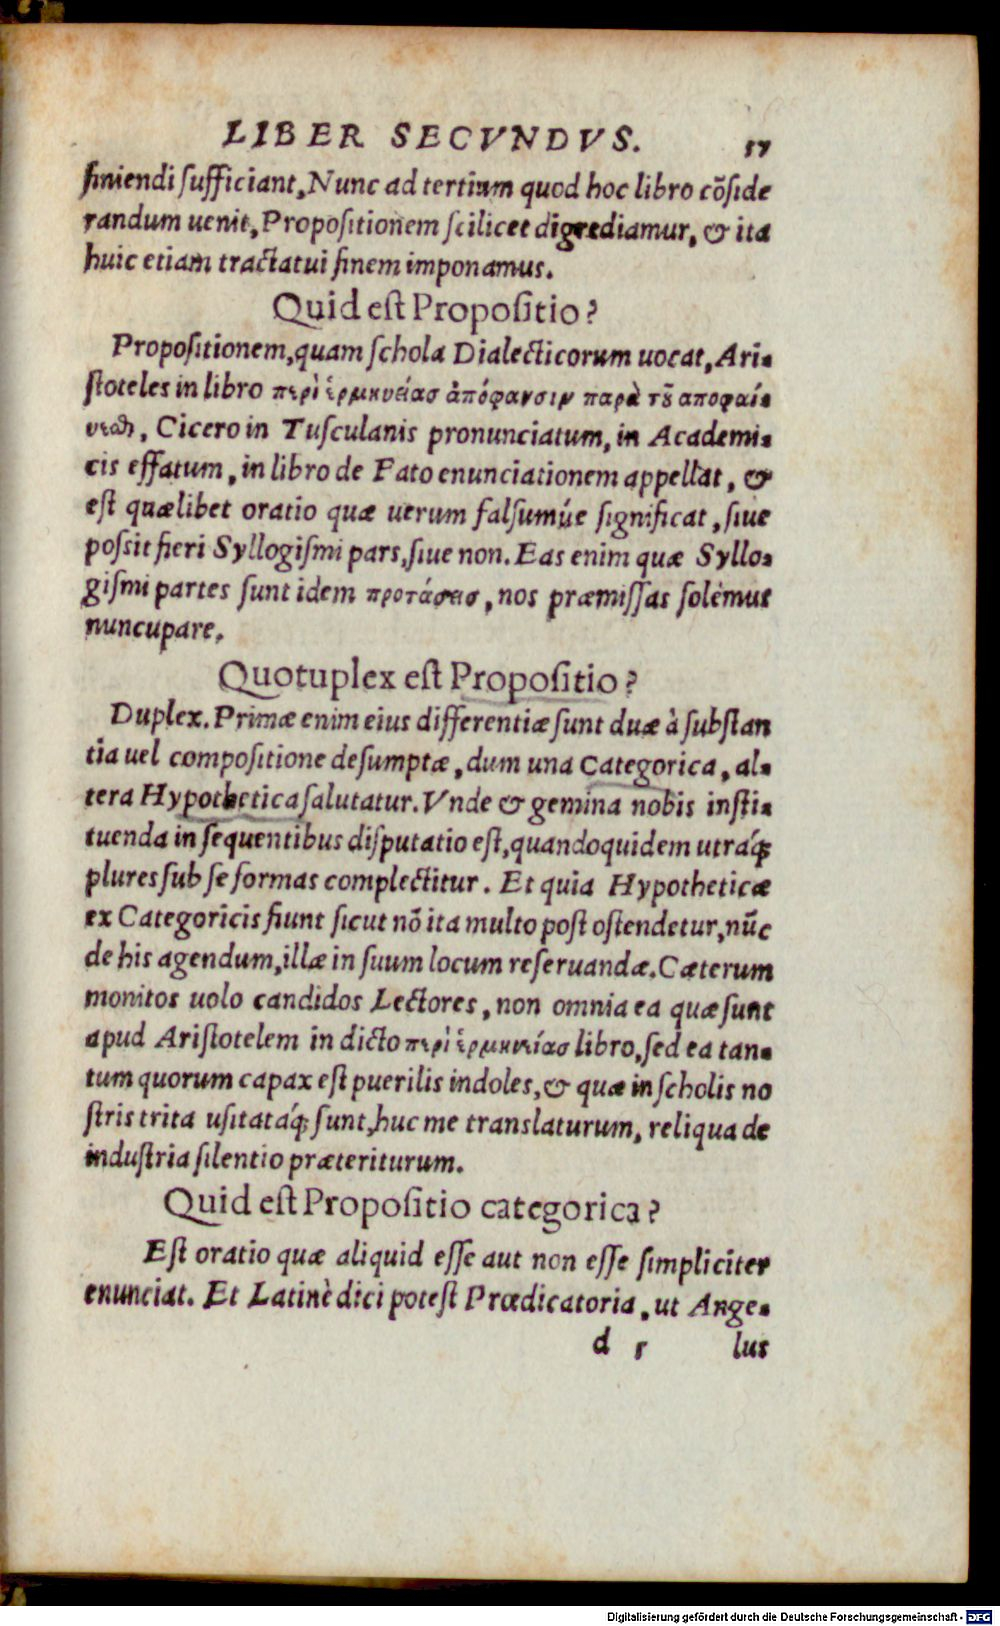 LIBER SECVNDVS. 57
finiendi sufficiant, Nunc ad tertium quod hoc libro cõside
randum uenit, Propositionem scilicet digrediamur, & ita
huic etiam tractatui finem imponamus.
Quid est Propositio?
Propositionem, quam schola Dialecticorum uocat, Ari-
stoteles in libro περὶ ἑρμηνείας ἀπόφανσιν παρὰ τȣ͂ αποφαί-
νεσθαι, Cicero in Tusculanis pronunciatum, in Academi-
cis effatum, in libro de Fato enunciationem appellat, &
est quælibet oratio quæ uerum falsumúe significat, siue
possit fieri Syllogismi pars, siue non. Eas enim quæ Syllo-
gismi partes sunt idem προτάσεις, nos præmissas solemus
nuncupare.
Quotuplex est Propositio?
Duplex. Primæ enim eius differentiæ sunt duæ à substan
tia uel compositione desumptæ, dum una Categorica, al-
tera Hypothetica salutatur. Vnde & gemina nobis insti-
tuenda in sequentibus disputatio est, quandoquidem utraq́;
plures sub se formas complectitur. Et quia Hypotheticæ
ex Categoricis fiunt sicut nõ ita multo post ostendetur, nũc
de his agendum, illæ in suum locum reseruandæ. Cæterum
monitos uolo candidos Lectores, non omnia ea quæ sunt
apud Aristotelem in dicto περὶ ἑρμηνείας libro, sed ea tan-
tum quorum capax est puerilis indoles, & quæ in scholis no
stris trita usitataq́; sunt, huc me translaturum, reliqua de
industria silentio præteriturum.
Quid est Propositio categorica?
Est oratio quæ aliquid esse aut non esse simpliciter
enunciat. Et Latinè dici potest Prædicatoria, ut Ange-
d 5 lus
Digitalisierung gefördert durch die Deutsche Forschungsgemeinschaft - DFG